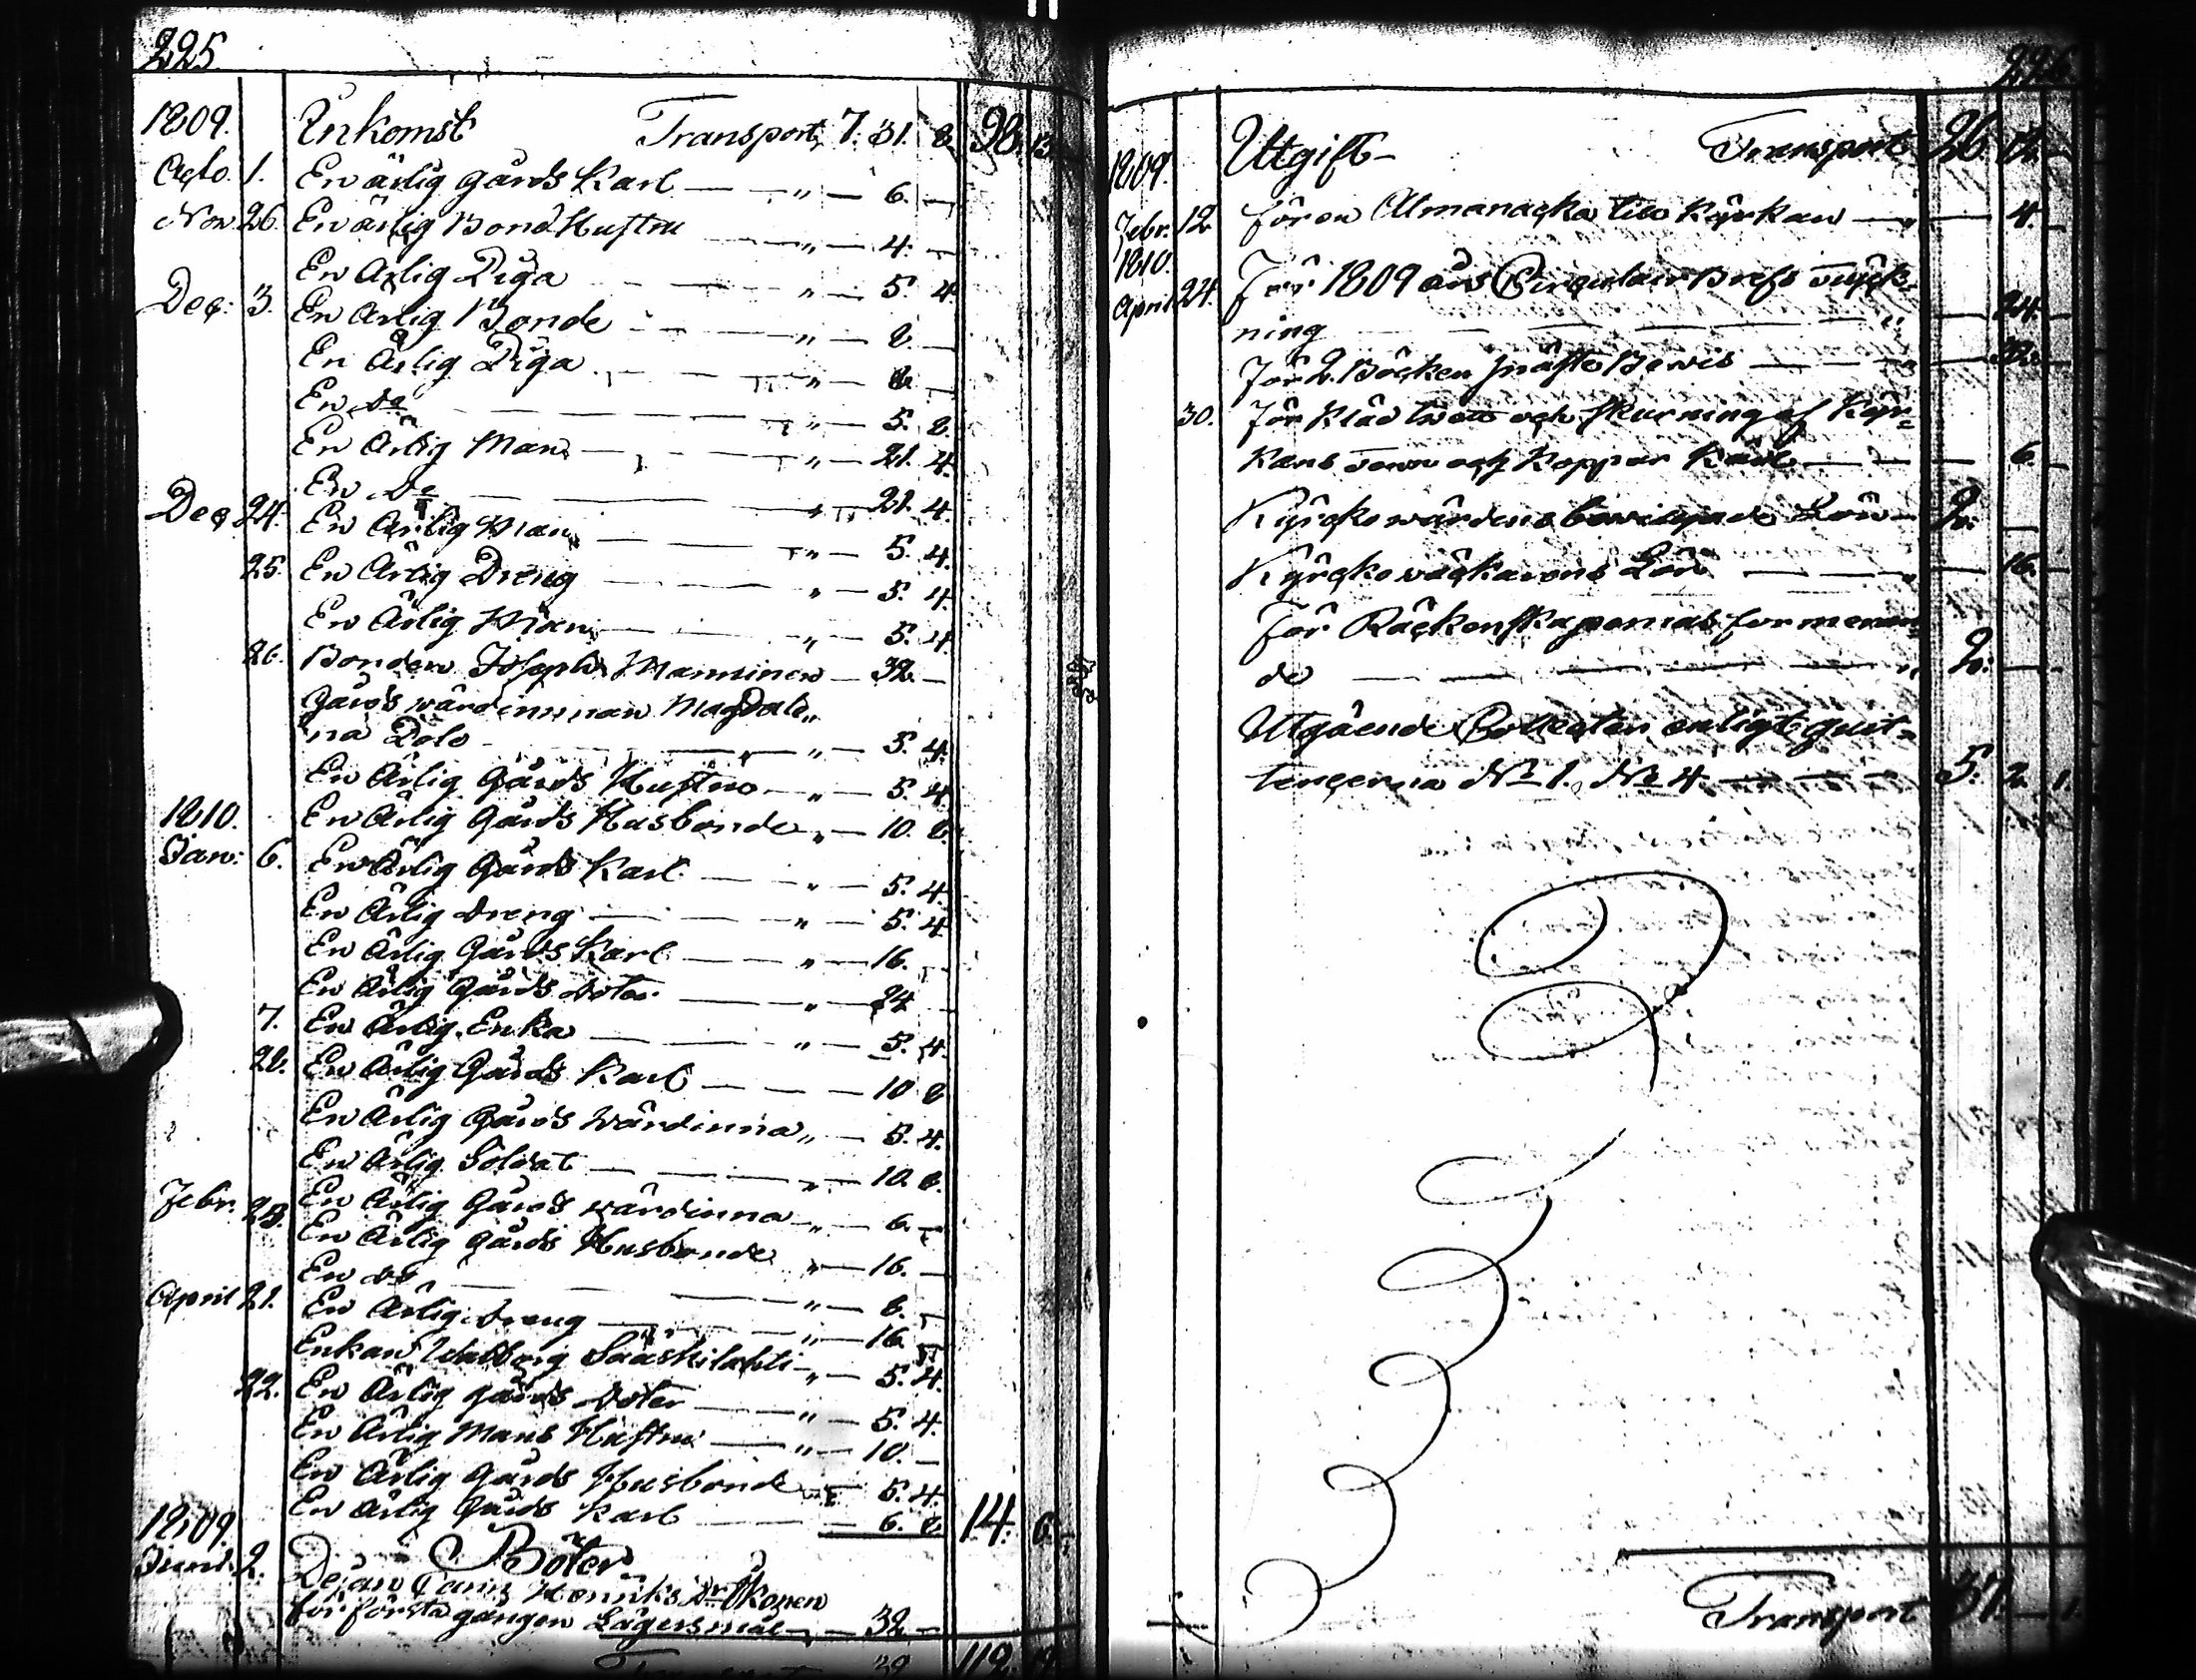 225.
1809. Inkomst Transport, 7. 31. 8. 98. 13.
Octo. 1. En ärlig gårds Karl — " — 6. —
Nov. 26. En ärlig Bond Hustru — " — 4. —
En Ärlig Piga — " — 5. 4.
Dec: 3. En Ärlig Bonde — " — 8. —
En Ärlig Piga — " — 8. —
En do — " — 5. 8.
En Ärlig Man — " — 21. 4.
En do — " — 21. 4.
Dec 24. En Ärlig Man — " — 5. 4.
25. En Ärlig Dreng — " — 5. 4.
En Ärlig Man — " — 5. 4.
26. Bonden Joseph Manninen — 32. —
Gårds wärdinnan Magdale„
na Dolo — " — 5. 4.
En Ärlig Gårds Hustru — " — 5. 4.
1810. En Ärlig Gårds Husbonde " — 10. 8.
Jan: 6. En Ärlig Gårds Karl — " — 5. 4.
En Ärlig Dreng — " — 5. 4.
En Ärlig Gårds Karl — " — 16. —
En Ärlig Gårds doter — " — 24
7. En Ärlig Enka — " — 5. 4.
28. En Ärlig Gårds Karl — — 10 8
En Ärlig Gårds Wärdinna " — 5. 4.
En Ärlig Soldat — " — 10. 8.
Febr. En Ärlig Gårds wärdinna " — 6. —
En Ärlig Gårds Husbonde " — 16. —
En do — " — 8. —
April 21. En Ärlig Dreng — " — 16. —
Enkan Walborg Sääskilahti " — 5. 4.
22. En Ärlig Gårds doter — " — 5. 4.
En Ärlig Mans Hustru — " — 10. —
En Ärlig Gårds Husbonde — 5. 4.
En Ärlig Gårds Karl — — 6. 8. 14. 6.
1809. Böter
Junii. 2. Dejan Carin Henriks Dr
för första gången Lägersmål — 32 —
112.
226.
1809. Utgift — Transport 26.
Febr. 12. för en Almanacka till Kyrkan — " — 4. —
1810.
April 24. För 1809 års Circulair Brefs tryck„
ning — " — 24. —
För 2. Böcker Präste Bewis — — 32.
30. För Klädtwätt och skurning af Kyr„
Kans och Koppar Käril — — 6. —
Kyrcko wärdens bewiljade Lön — 2. —
Kyrcko wäckarens Lön — " — 16. —
För Räckenskapernas formeran„
de — " 2. —
Utgående Collecten enligt quit„
tencerna No 1. No 4 — 5. 2. 1.
Transport 37. — 1.